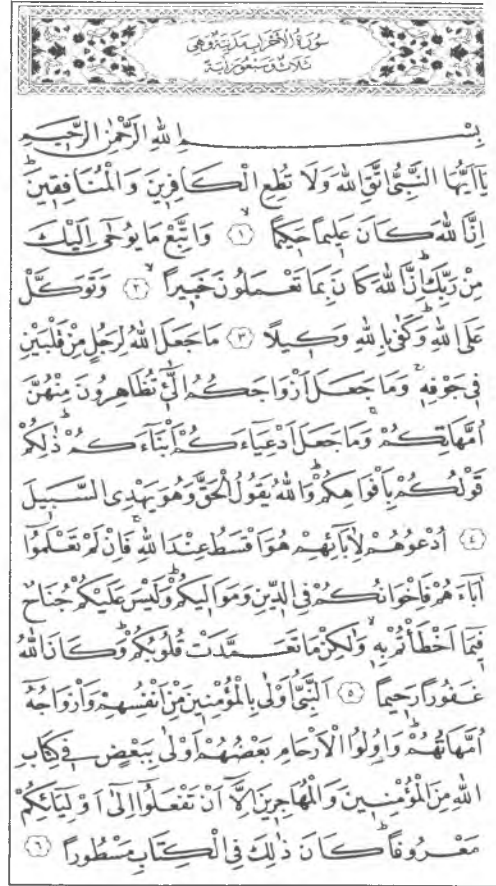 سُورَةُ الْاَحْزَابِ مَدَنِيَّةٌ وَهِيَ
ثَلَاثٌ وَسَبْعُونَ اٰيَةً
بِسْمِ اللهِ الرَّحْمٰنِ الرَّحِيمِ
يَآاَيُّهَا النَّبِيُّ اتَّقِ اللهَ وَلَا تُطِعِ الْكَافِرِينَ وَالْمُنَافِقِينَۜ
اِنَّ اللهَ كَانَ عَلِيماً حَكِيماًۙ ﴿١﴾ وَاتَّبِعْ مَا يُوحٰٓى اِلَيْكَ
مِنْ رَبِّكَۜ اِنَّ اللهَ كَانَ بِمَا تَعْمَلُونَ خَبِيراًۙ ﴿٢﴾ وَتَوَكَّلْ
عَلَى اللهِۜ وَكَفٰى بِاللهِ وَكِيلاً ﴿٣﴾ مَا جَعَلَ اللهُ لِرَجُلٍ مِنْ قَلْبَيْنِ
فِي جَوْفِهِۚ وَمَا جَعَلَ اَزْوَاجَكُمُ الّٰٓـئِ تُظَاهِرُونَ مِنْهُنَّ
اُمَّهَاتِكُمْۚ وَمَا جَعَلَ اَدْعِيَآءَكُمْ اَبْنَآءَكُمْۜ ذٰلِكُمْ
قَوْلُكُمْ بِاَفْوَاهِكُمْۜ وَاللهُ يَقُولُ الْحَقَّ وَهُوَ يَهْدِي السَّبِيلَ
﴿٤﴾ اُدْعُوهُمْ لِاٰبَآئِهِمْ هُوَ اَقْسَطُ عِنْدَ اللهِۚ فَاِنْ لَمْ تَعْلَمُوٓا
اٰبَآءَهُمْ فَاِخْوَانُكُمْ فِي الدِّينِ وَمَوَالِيكُمْۜ وَلَيْسَ عَلَيْكُمْ جُنَاحٌ
فِيمَآ اَخْطَأْتُمْ بِهِۙ وَلٰكِنْ مَا تَعَمَّدَتْ قُلُوبُكُمْۜ وَكَانَ اللهُ
غَفُوراً رَحِيماً ﴿٥﴾ اَلنَّبِيُّ اَوْلٰى بِالْمُؤْمِنِينَ مِنْ اَنْفُسِهِمْ وَاَزْوَاجُهُٓ
اُمَّهَاتُهُمْۜ وَاُولُوا الْاَرْحَامِ بَعْضُهُمْ اَوْلٰى بِبَعْضٍ فِي كِتَابِ
اللهِ مِنَ الْمُؤْمِنِينَ وَالْمُهَاجِرِينَ اِلَّٓا اَنْ تَفْعَلُٓوا اِلٰٓى اَوْلِيَآئِكُمْ
مَعْرُوفاًۜ كَانَ ذٰلِكَ فِي الْكِتَابِ مَسْطُوراً ﴿٦﴾